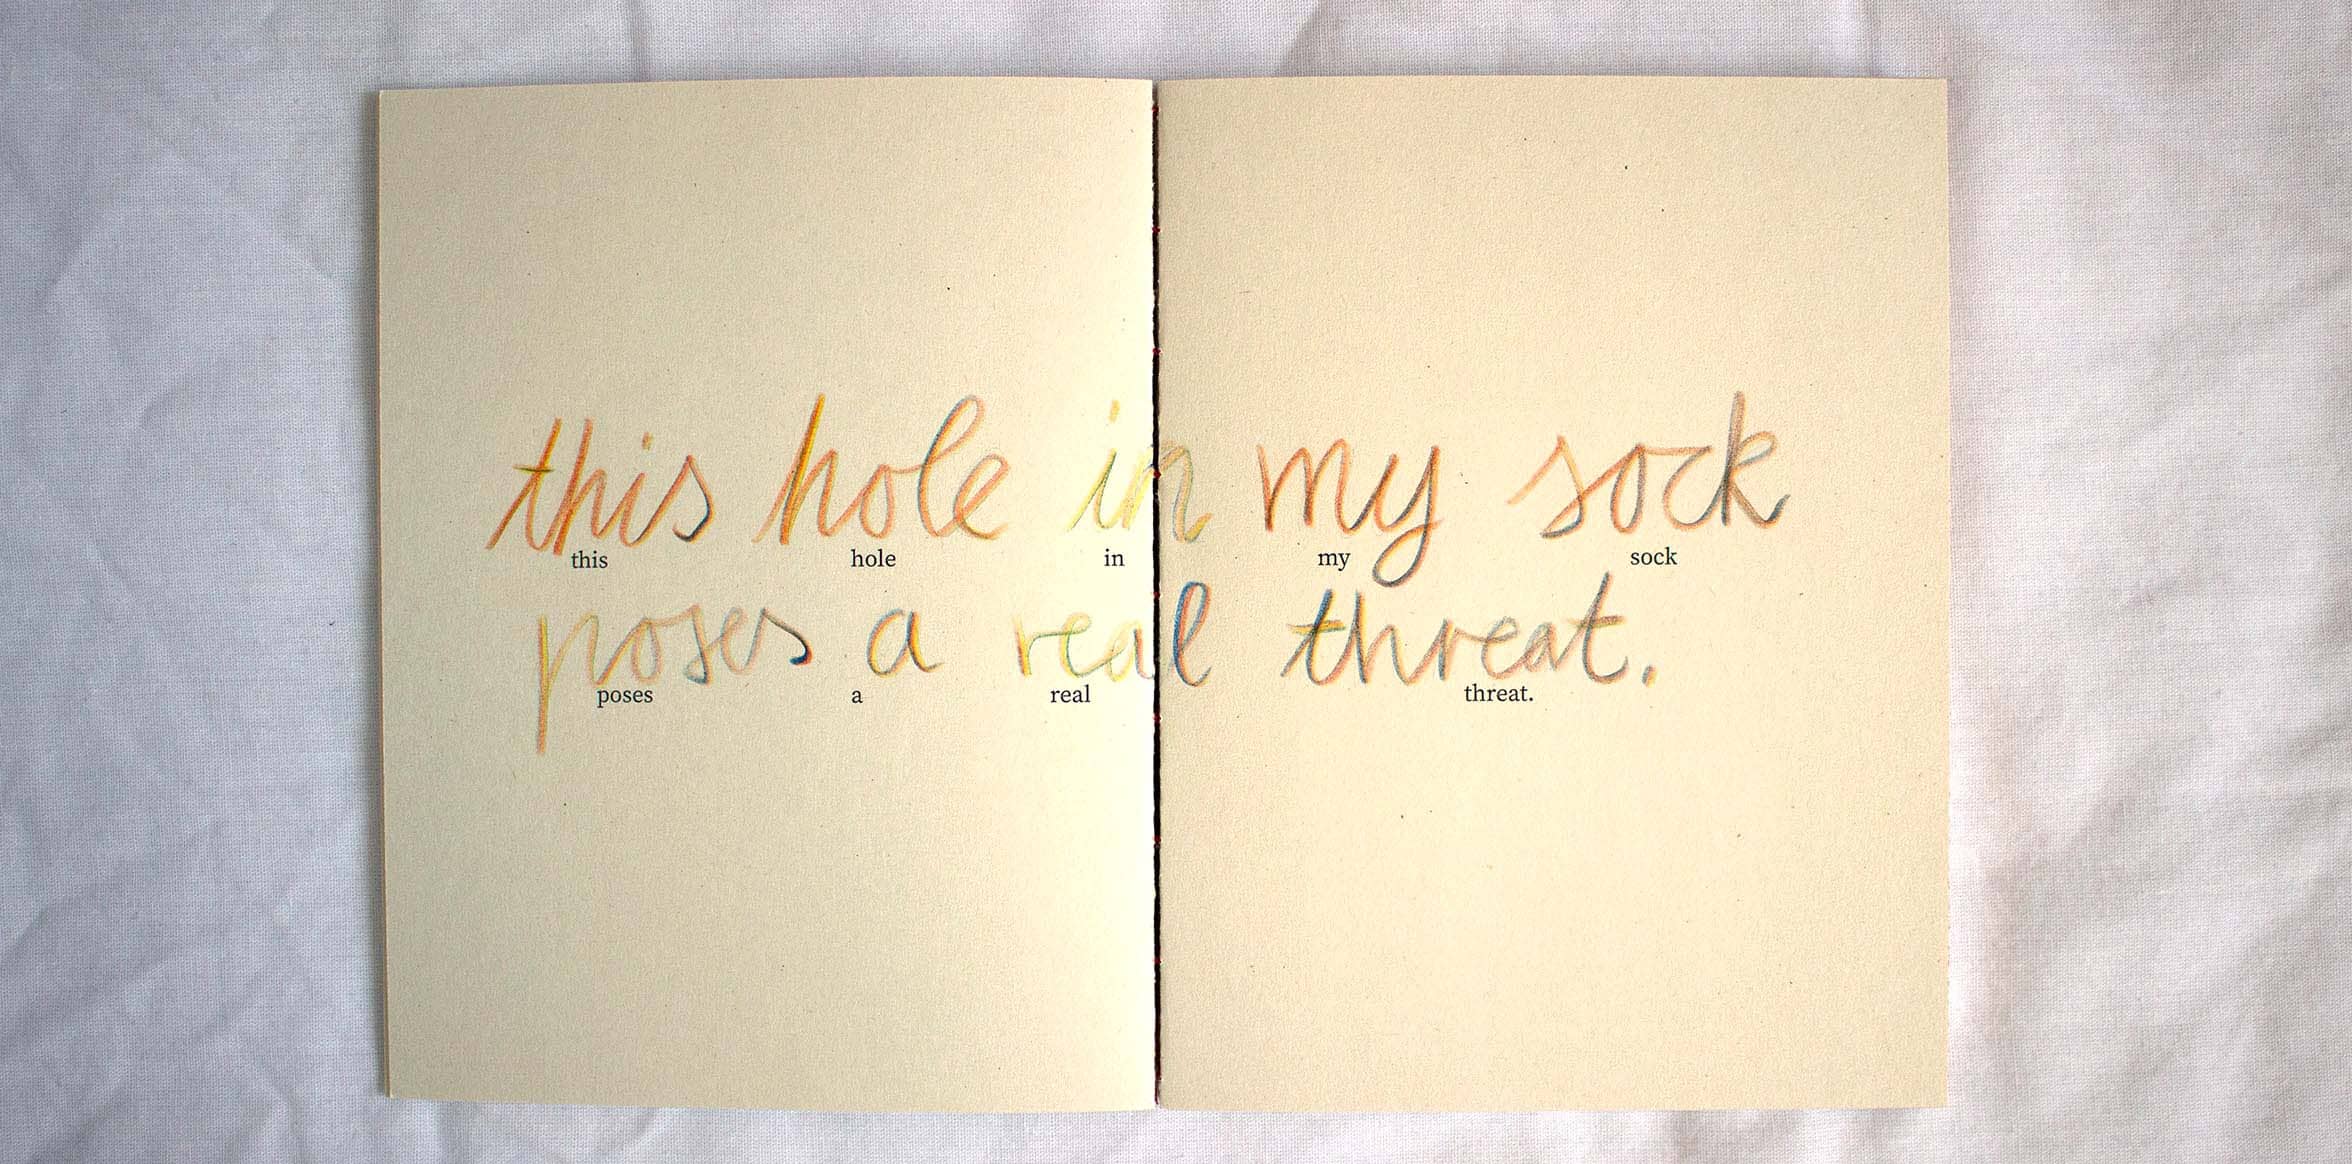 this hole in my sock
this hole in my sock
poses a real threat.
poses a real threat.